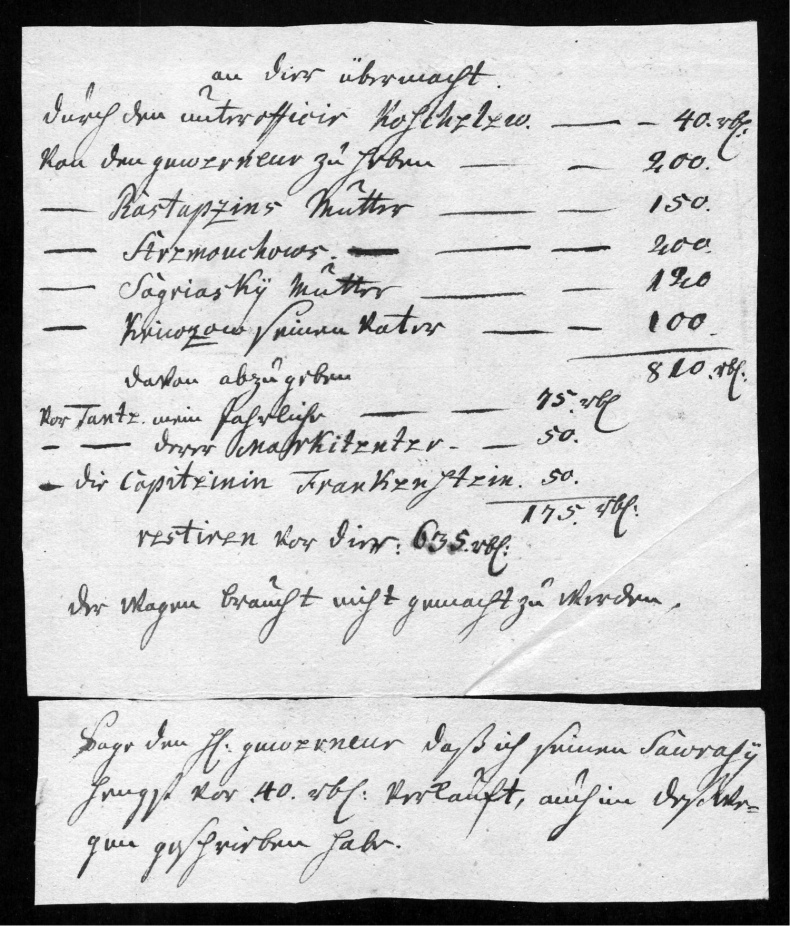 an dier übermacht.
durch den unterofficir Koschelew. — — 40. rbl:
Von den guwerneur zu heben — — 200.
— Rastopzins Mutter — — 150.
— Arzmouchows. — — — 200.
— Sagriasky Mutter — — 120
— Kriwozow seinen Vater — — 100.
davon abzugeben 810. rbl:
vor Tantz. mein jahrliche — — 75. rbl
- — derer Markitenter - — 50.
- die Capiteinin Frankenstein. 50.
175. rbl:
restiren vor dier: 635. rbl:
der Wagen braucht nicht gemacht zu werden.
Sage den H: guwerneur daß ich seinen Sawrasy
hengst vor 40. rbl: verkauft, auch im deswe=
gen geschrieben habe.